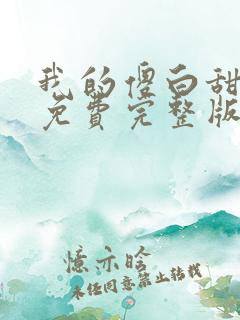 我的傻白甜
免费完整版
忆亦晗
未经同意禁止转载